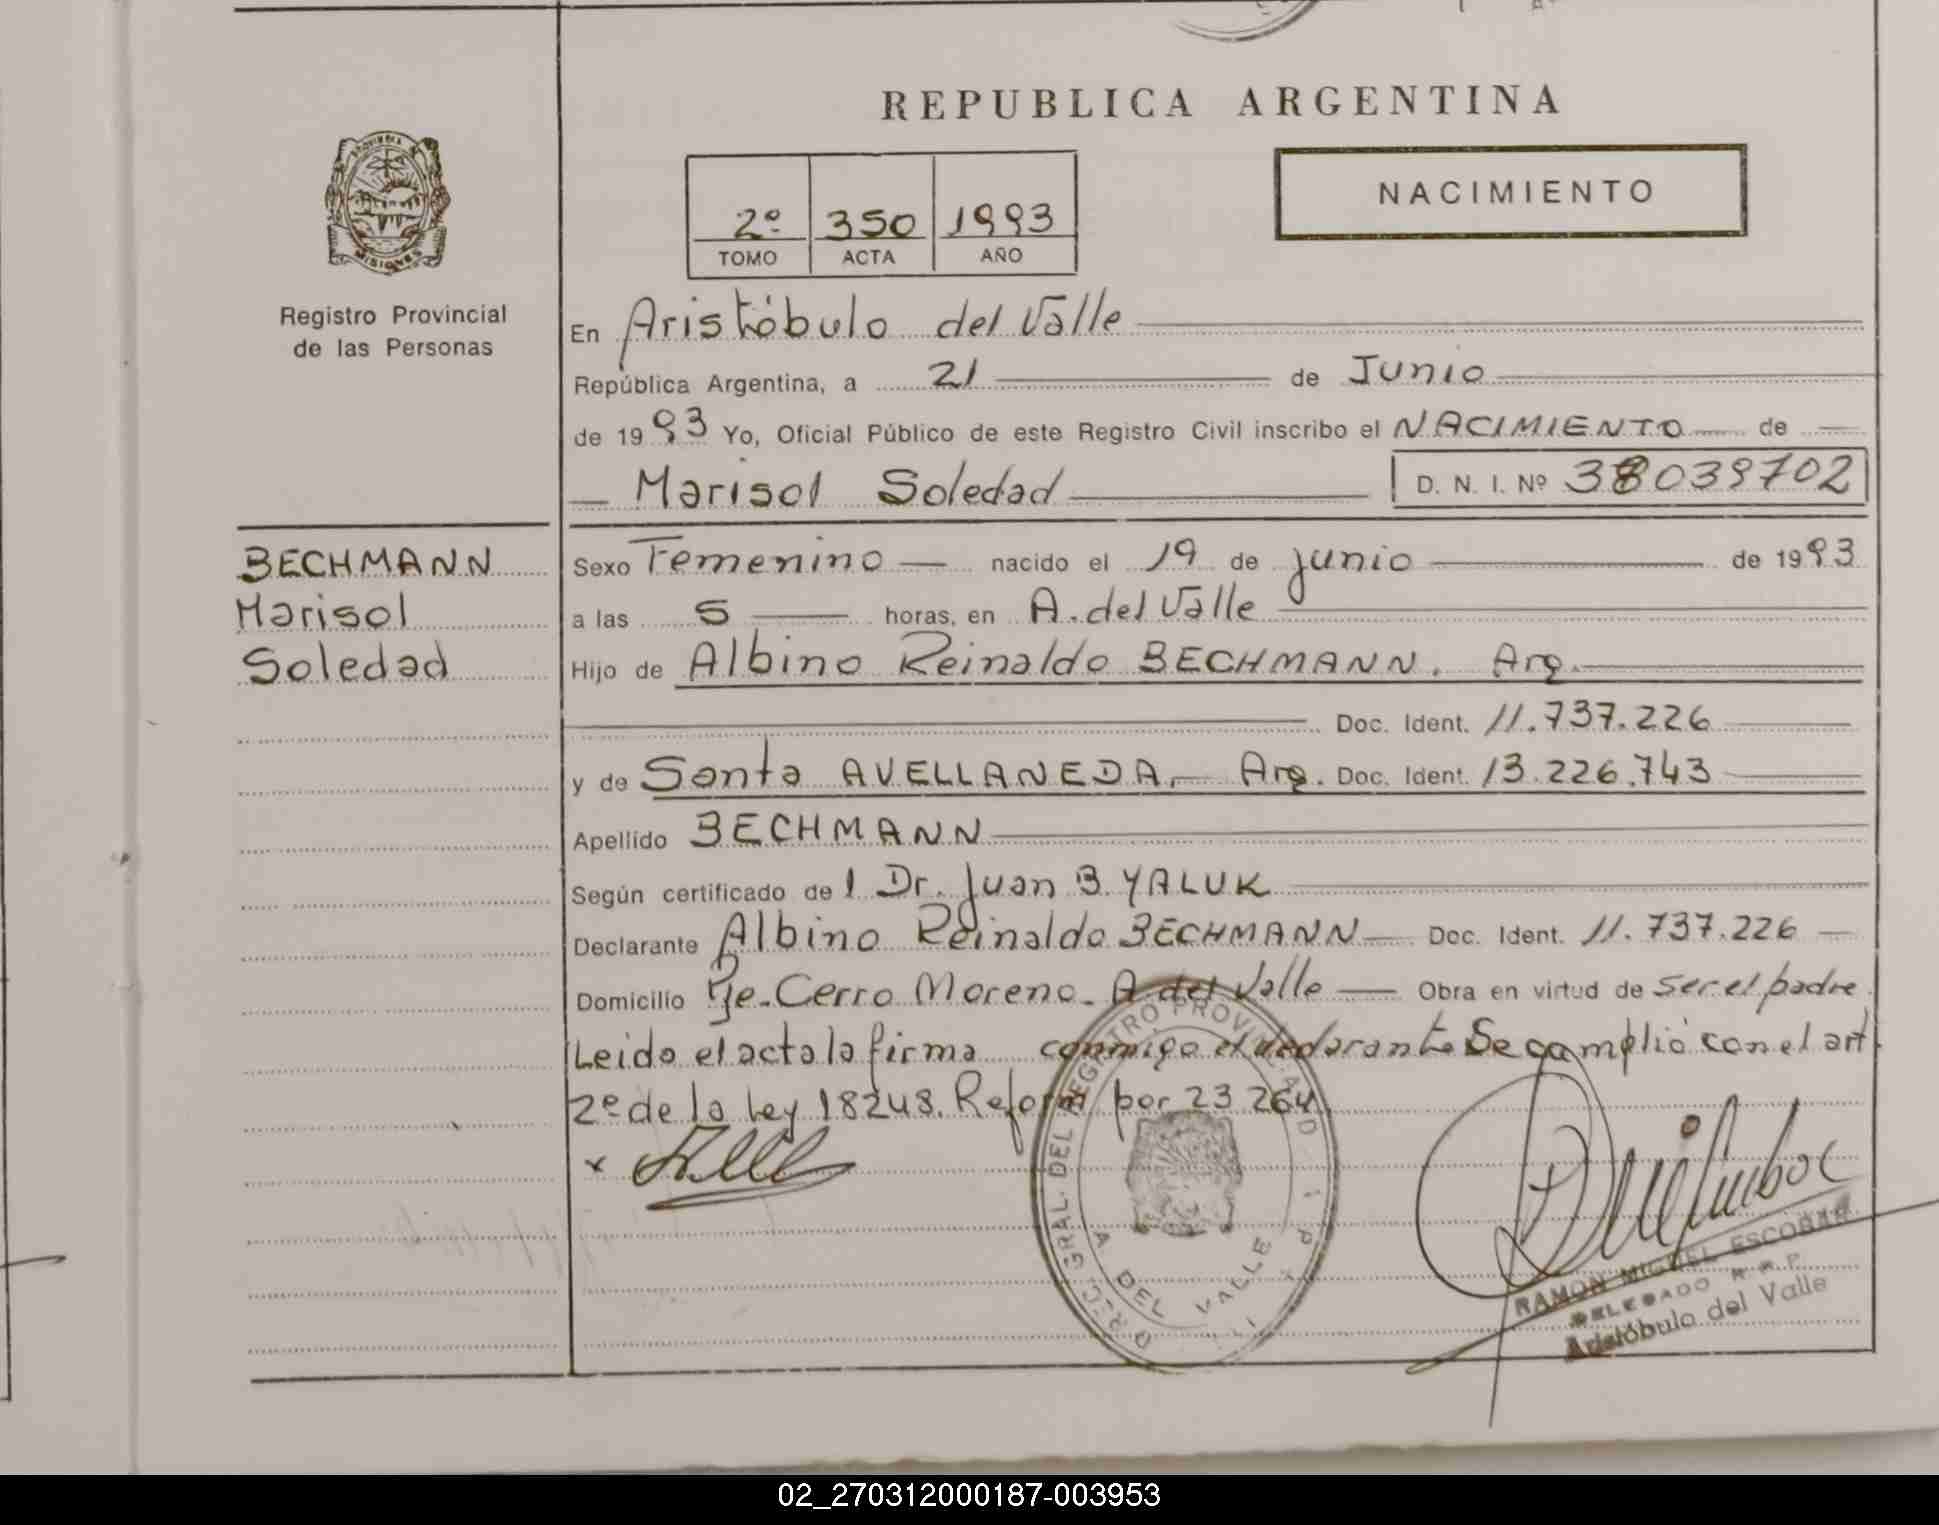 REPUBLICA ARGENTINA
NACIMIENTO
2º 350 1993
TOMO ACTA AÑO
PROVINCIA
MISIONES
Registro Provincial
de las Personas
BECHMANN
Marisol
Soledad
En Aristóbulo del Valle
República Argentina, a 21 de Junio
de 1993 Yo, Oficial Público de este Registro Civil inscribo el NACIMIENTO de
Marisol Soledad D. N. I. Nº 38039702
Sexo Femenino nacido el 19 de junio de 1993
a las 5 horas, en A. del Valle
Hijo de Albino Reinaldo BECHMANN. Arg.
Doc. Ident. 11.737.226
y de Santa AVELLANEDA, Arg. Doc. Ident. 13.226.743
Apellido BECHMANN
Según certificado de l Dr. Juan B. YALUK
Declarante Albino Reinaldo BECHMANN Doc. Ident. 11.737.226
Domicilio Pje. Cerro Moreno. A del Valle Obra en virtud de ser el padre
Leido el acta la firma conmigo el declarante Se cumplió con el art
2º de la Ley 18248. Reform por 23 264
DEL VALLE
RAMON MIGUEL ESCOBAR
DELEGADO R. R. P.
Aristóbulo del Valle
02_270312000187-003953